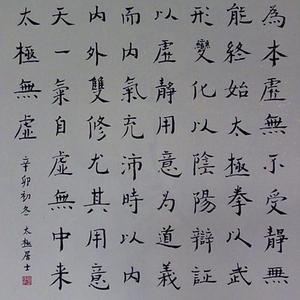 為本虛無示受靜無
能終始太極拳以武
形變化以陰陽辯証
以虛靜用意為道義
而內氣充沛時以內
內外雙修尤其用意
天一氣自虛無中来
太極無虛
辛卯初冬 太極居士